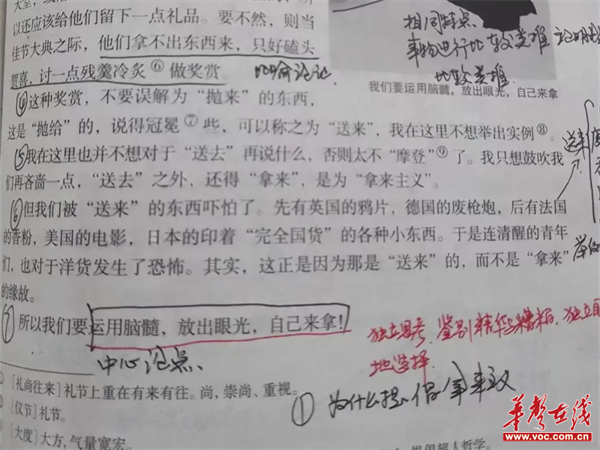 以还应该给他们留下一点礼品。要不然,则当
佳节大典之际,他们拿不出东西来,只好磕头
贺喜,讨一点残羹冷炙⑥做奖赏。
相同特点
事物进行比较类推
比较类推
比喻论证
我们要运用脑髓,放出眼光,自己来拿
这种奖赏,不要误解为“抛来”的东西,
这是“抛给”的,说得冠冕⑦些,可以称之为“送来”,我在这里不想举出实例⑧。
⑤我在这里也并不想对于“送去”再说什么,否则太不“摩登”⑨了。我只想鼓吹我
们再吝啬一点,“送去”之外,还得“拿来”,是为“拿来主义”。
送来
⑥但我们被“送来”的东西吓怕了。先有英国的鸦片,德国的废枪炮,后有法国
的香粉,美国的电影,日本的印着“完全国货”的各种小东西。于是连清醒的青年
们,也对于洋货发生了恐怖。其实,这正是因为那是“送来”的,而不是“拿来”
的缘故。
⑦所以我们要运用脑髓,放出眼光,自己来拿!
独立思考,鉴别精华糟粕,独立自
地选择
中心论点
①为什么提倡拿来主义
[礼尚往来]礼节上重在有来有往。尚,崇尚、重视。
[仪节]礼节。
[大度]大方,气量宽宏。
华声在线
www.voc.com.cn